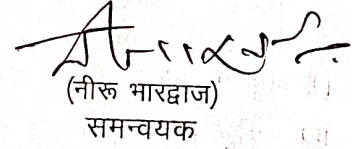 (नीरू भारद्वाज)
समन्वयक